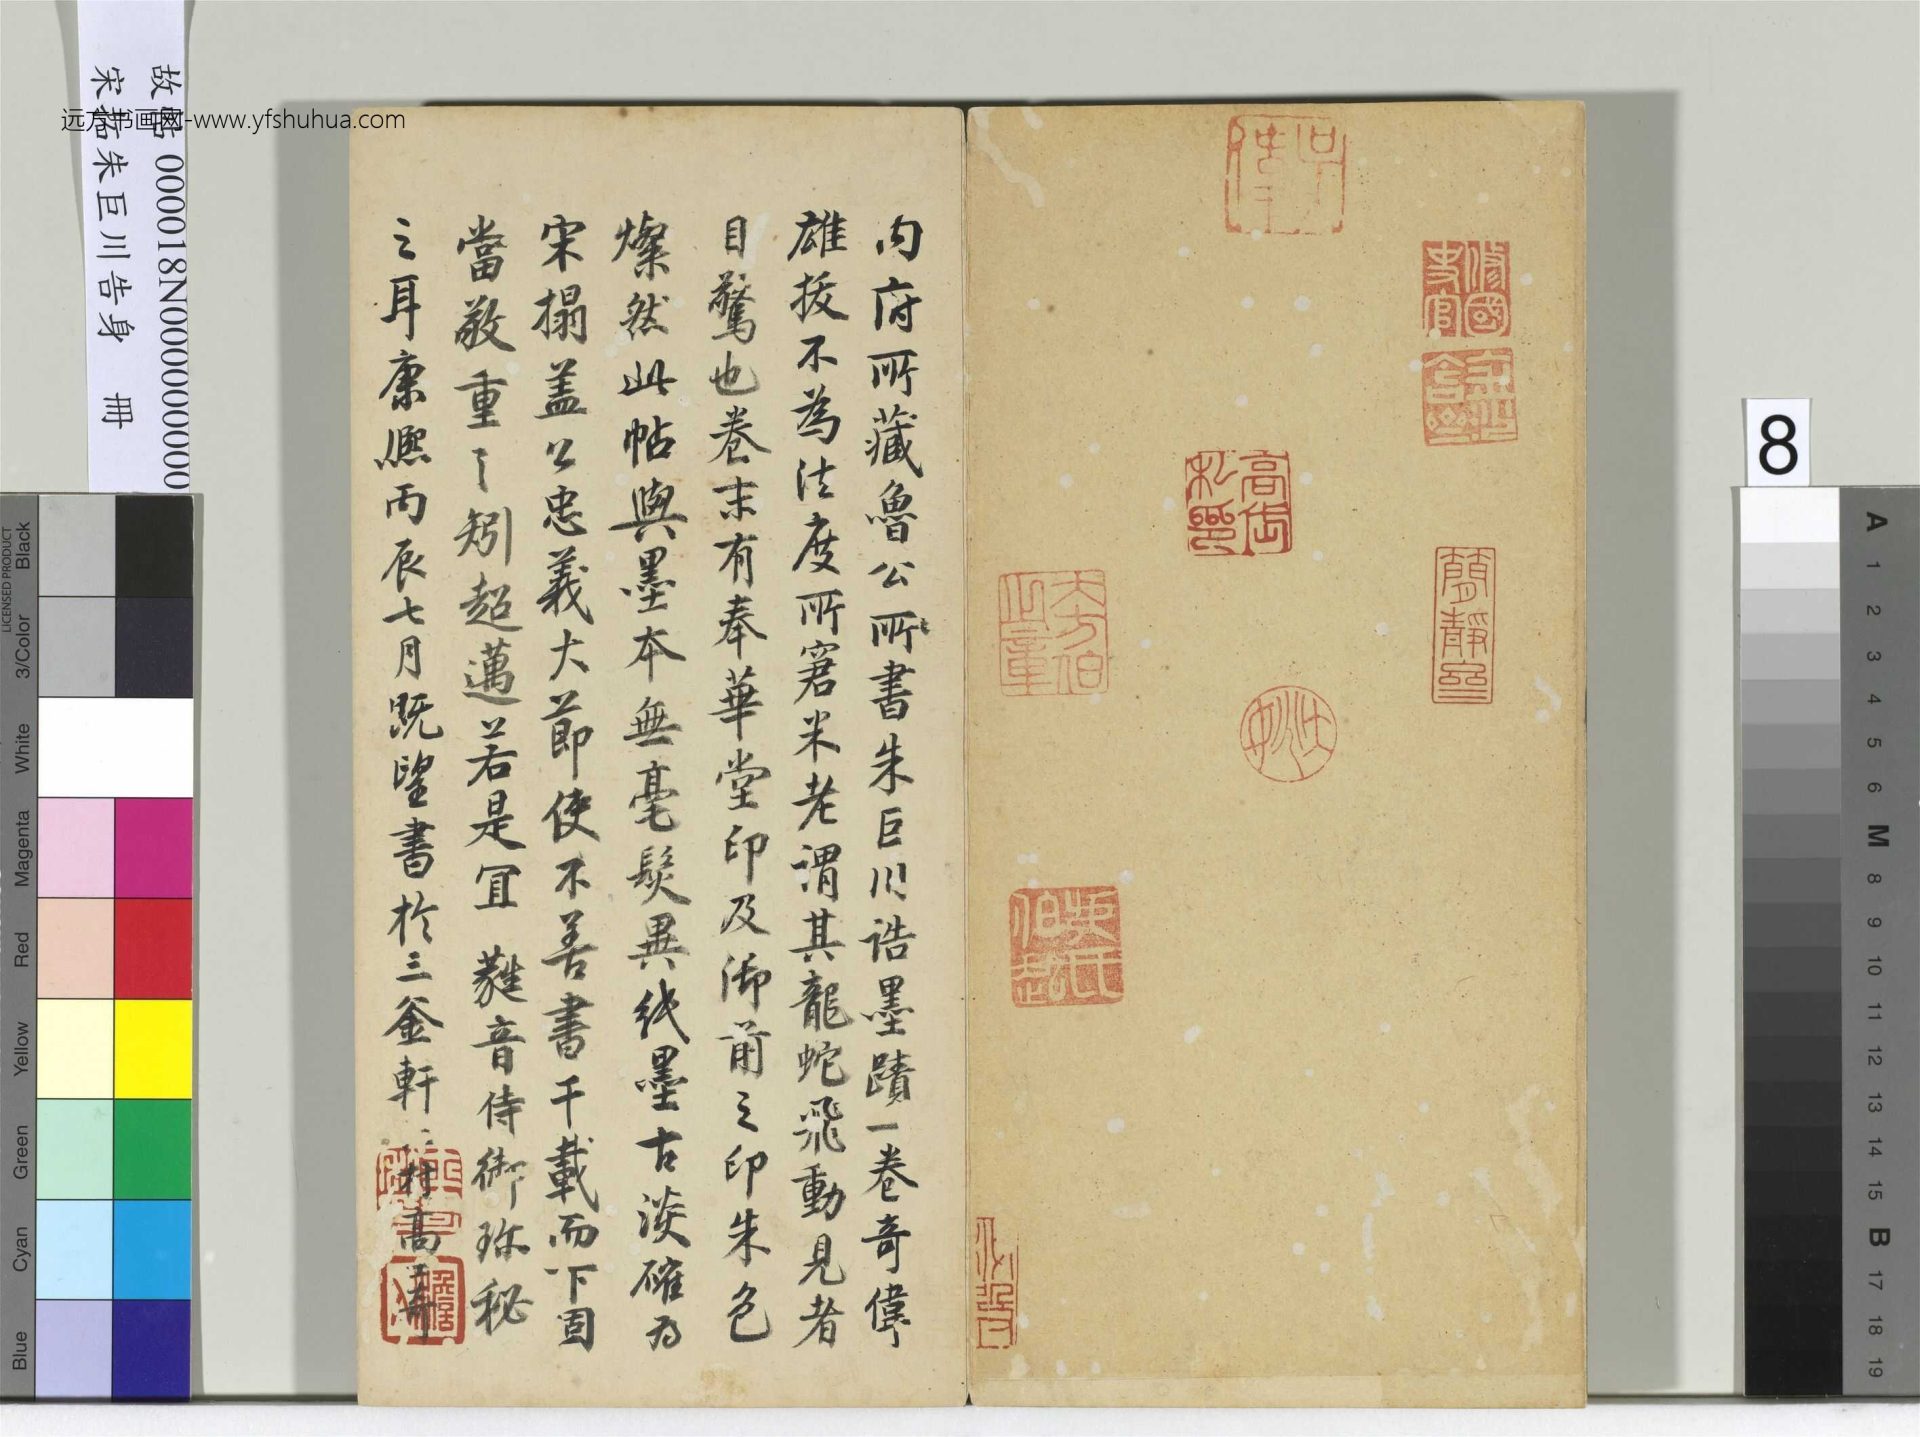 内府所藏魯公所書朱巨川誥墨蹟一卷奇偉
雄拔不為法度所窘米老謂其龍蛇飛動見者
目驚也卷末有奉華堂印及御前之印朱色
燦然此帖與墨本無毫髮異紙墨古淡確為
宋搨盖公忠義大節使不善書千載而下固
當敬重之矧超邁若是宜 蕤音侍御珎秘
之耳康熙丙辰七月既望書於三釜軒 村高士奇
修國史官
高士奇
簡靜齋
大方伯之章
故帖 000018N000000000
宋拓朱巨川告身 冊
远方书画网-www.yfshuhua.com
8
LICENSED PRODUCT
Black
3/Color
White
Magenta
Red
Yellow
Green
Cyan
Blue
A
1
2
3
4
5
6
M
8
9
10
11
12
13
14
15
B
17
18
19